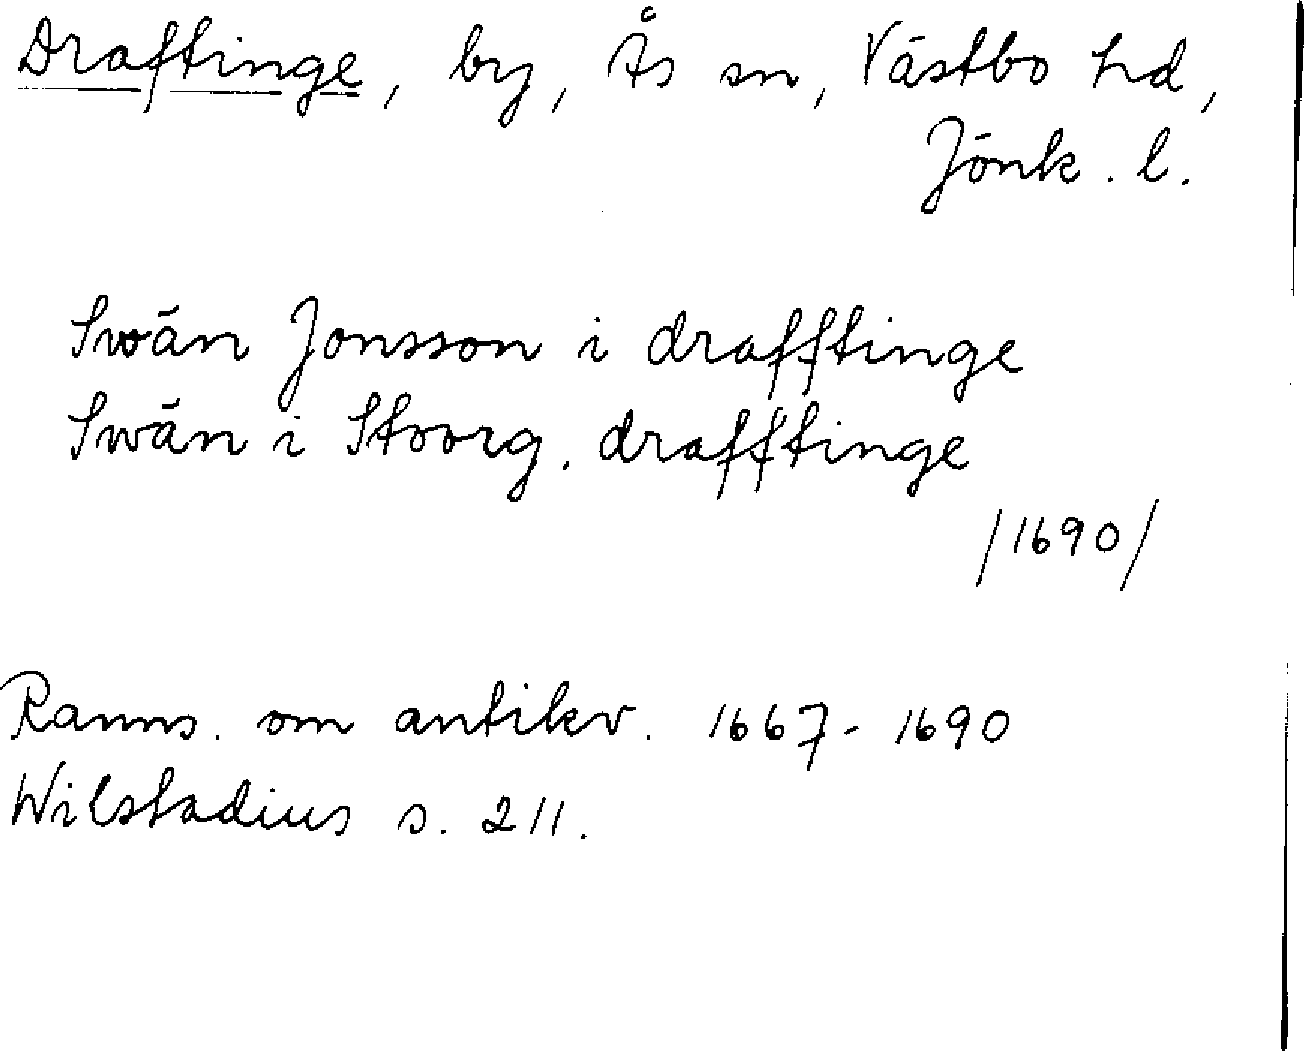 Draftinge, by, Ås sn, Västbo hd,
Jönk. l.
Swän Jonsson i drafftinge
Swän i Stoorg. drafftinge
/1690/
Ranns. om antikv. 1667-1690
Wilstadius s. 211.